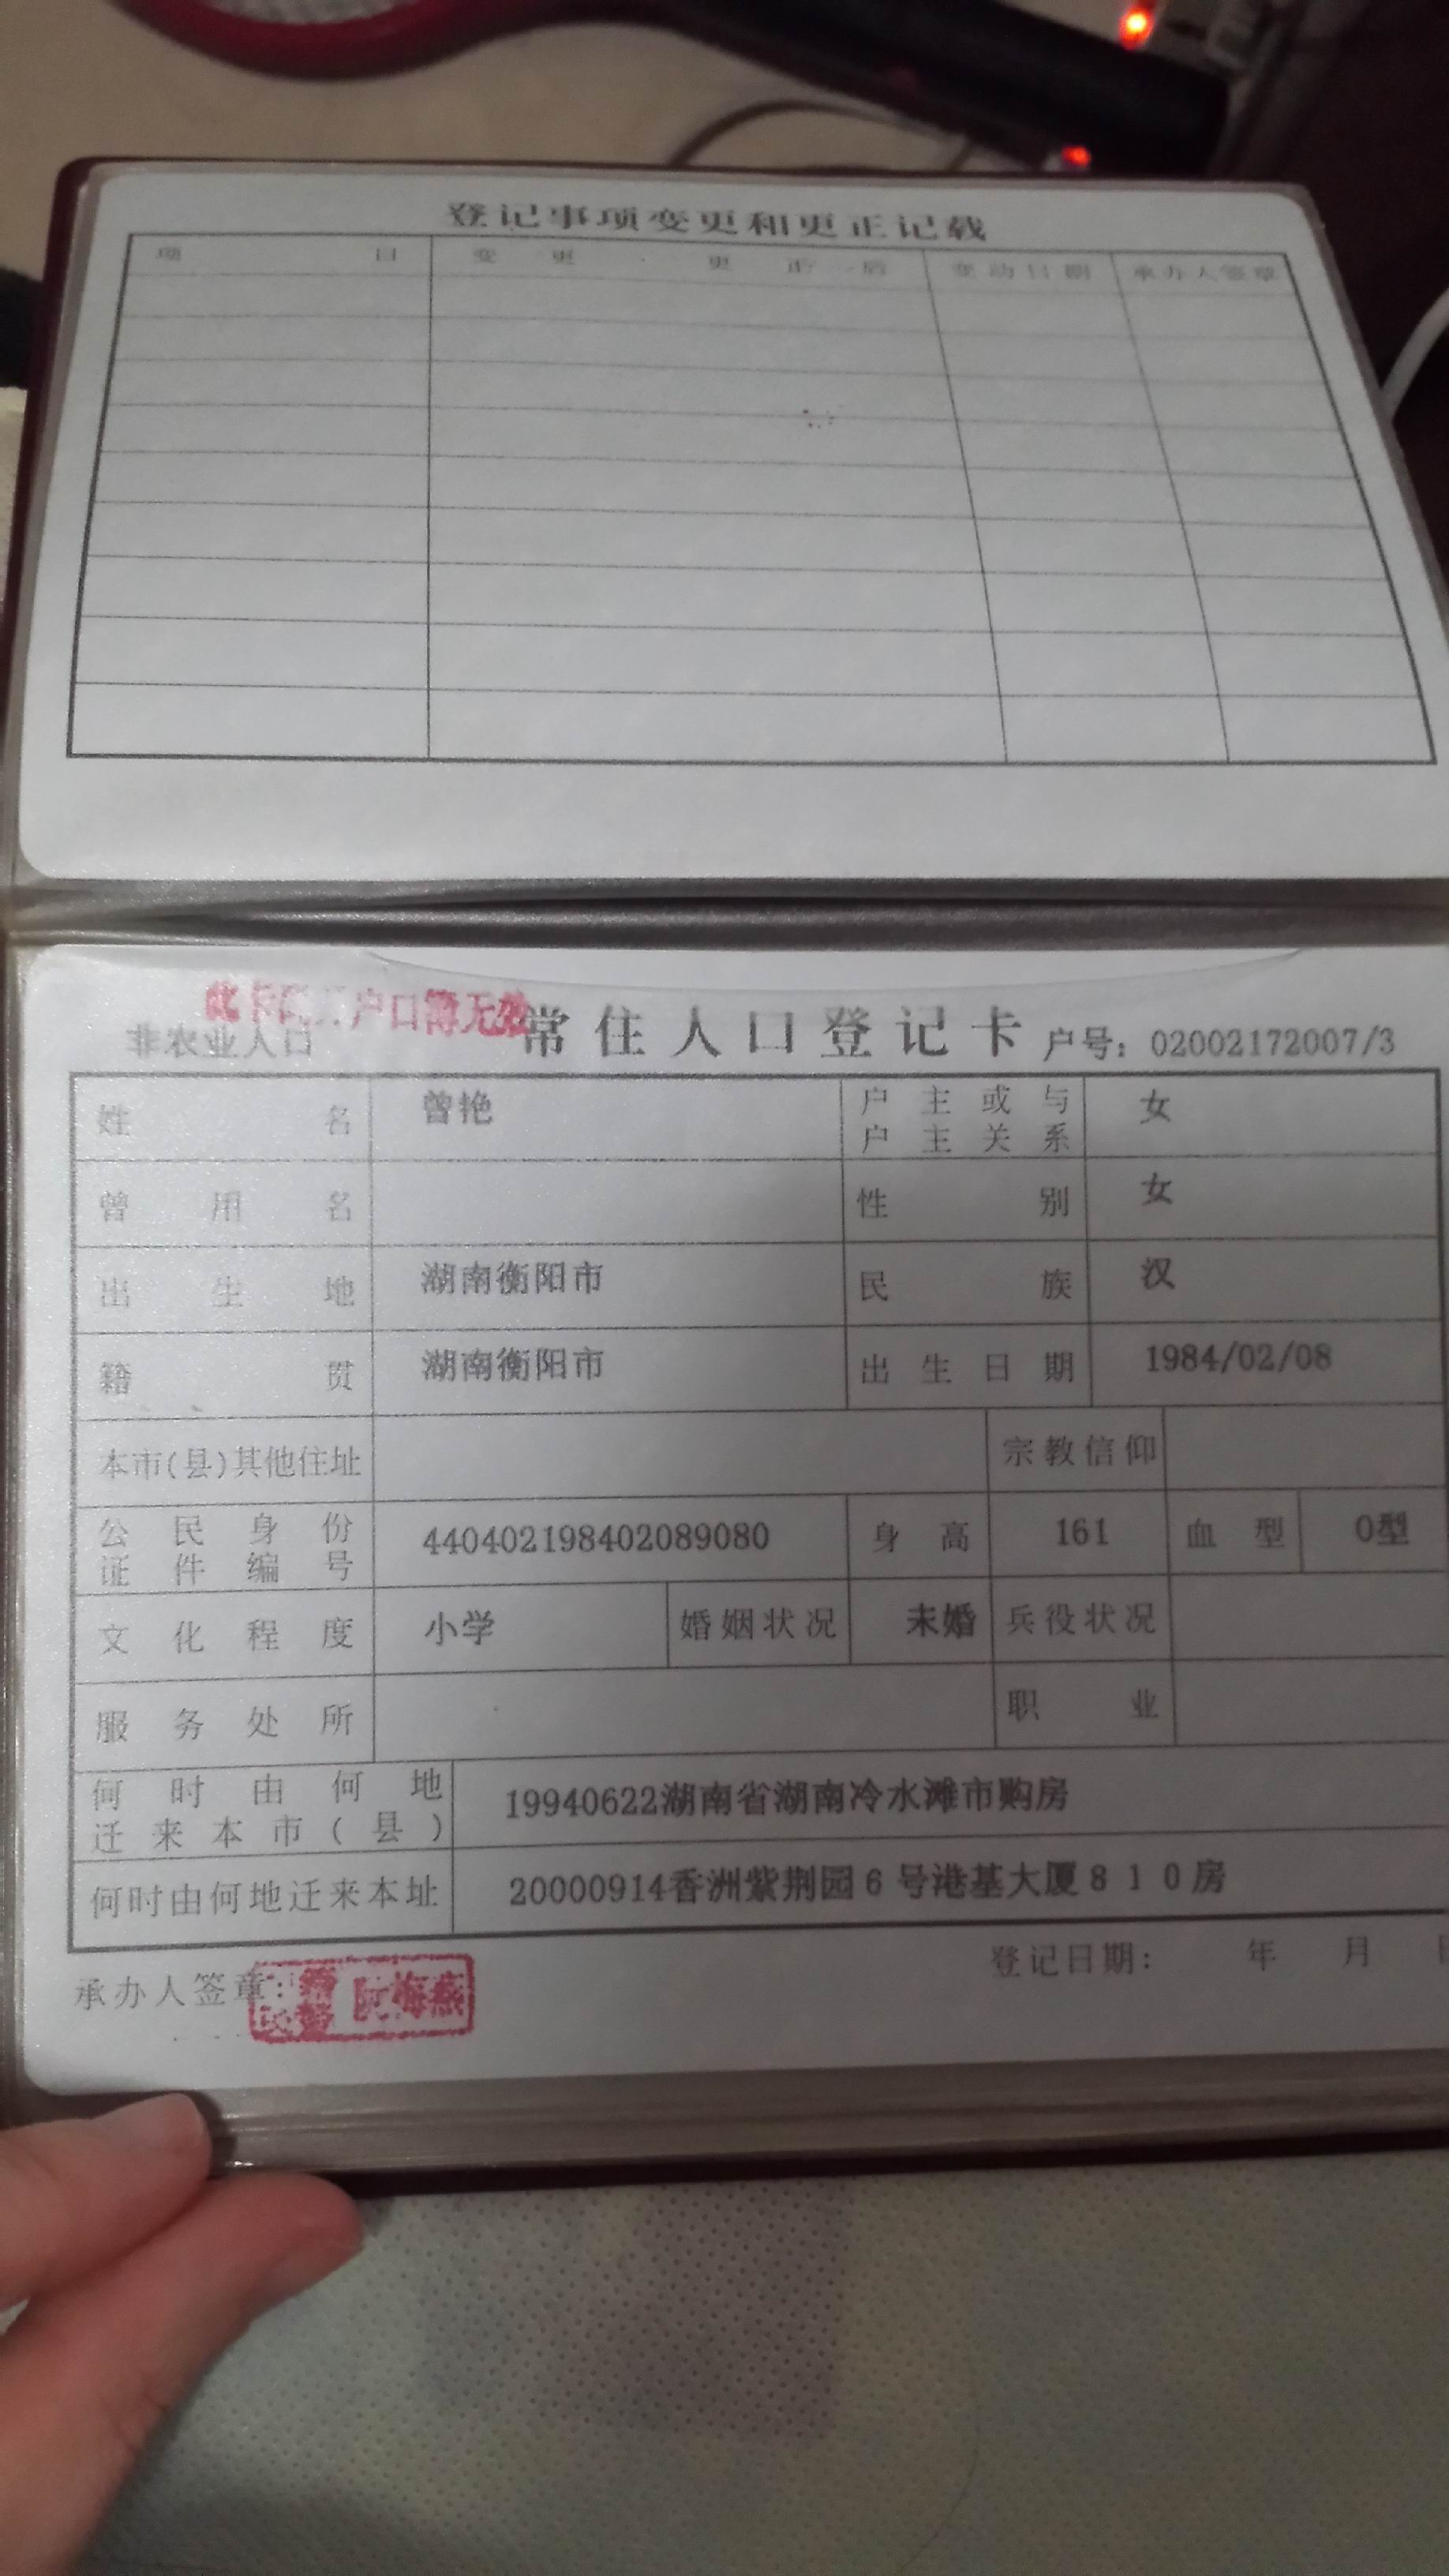 登记事项变更和更正记载
项 目 变 更 、 更 正 后 变动日期 承办人签章
户口簿无效
非农业人口 常住人口登记卡 户号：02002172007/3
姓名 曾艳 户主或与户主关系 女
曾用名 性别 女
出生地 湖南衡阳市 民族 汉
籍贯 湖南衡阳市 出生日期 1984/02/08
本市(县)其他住址 宗教信仰
公民身份证件编号 440402198402089080 身高 161 血型 O型
文化程度 小学 婚姻状况 未婚 兵役状况
服务处所 职业
何时由何地迁来本市(县) 19940622湖南省湖南冷水滩市购房
何时由何地迁来本址 20000914香洲紫荆园6号港基大厦810房
登记日期： 年 月 日
承办人签章： 梅燕